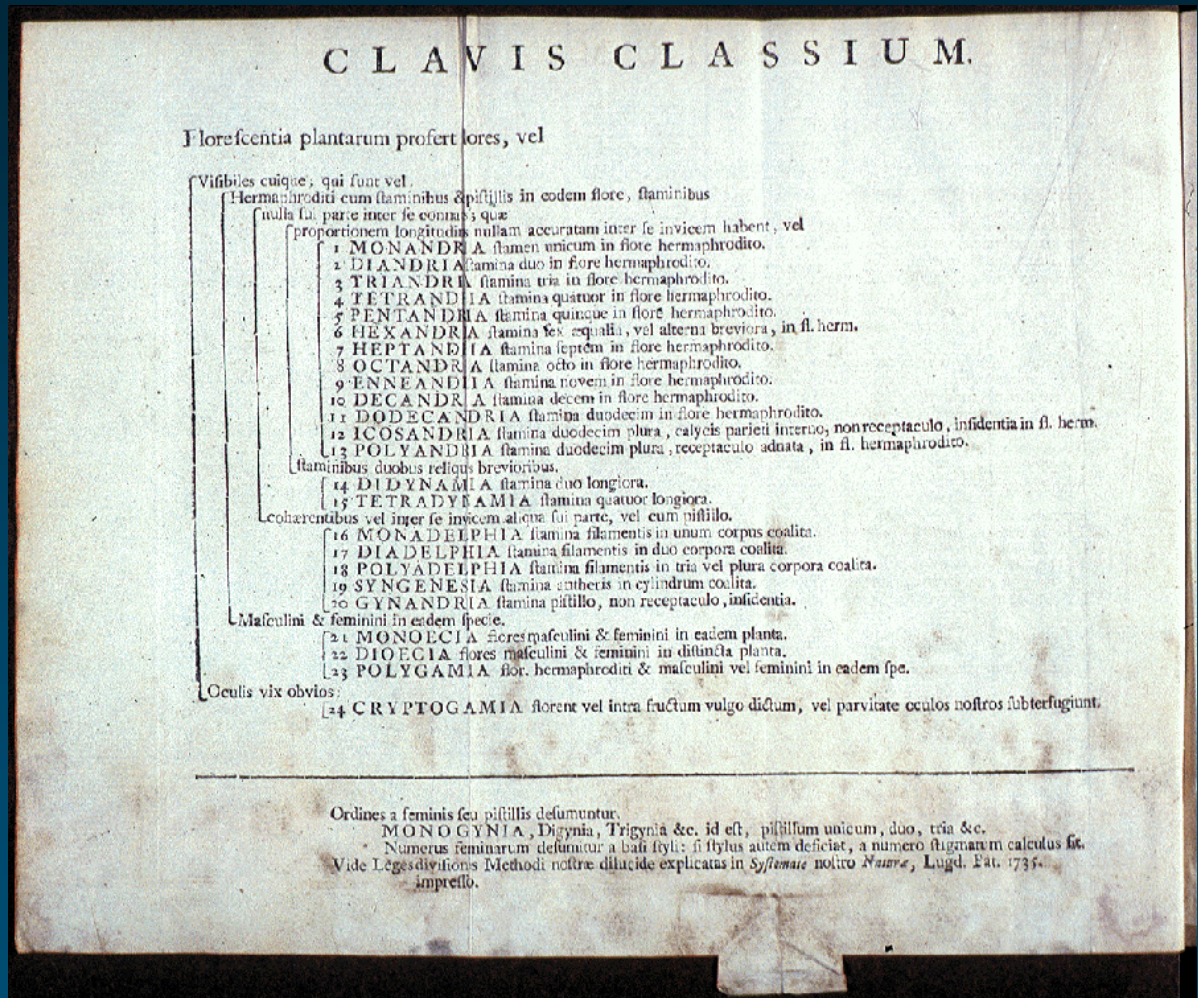 CLAVIS CLASSIUM.
Florescentia plantarum profert lores, vel
Visibiles cuique; qui sunt vel
Hermaphroditi cum staminibus & pistillis in eodem flore, staminibus
nulla sui parte inter se connatis; quæ
proportionem longitudinis nullam accuratam inter se invicem habent, vel
1 MONANDRIA stamen unicum in flore hermaphrodito.
2 DIANDRIA stamina duo in flore hermaphrodito.
3 TRIANDRIA stamina tria in flore hermaphrodito.
4 TETRANDRIA stamina quatuor in flore hermaphrodito.
5 PENTANDRIA stamina quinque in flore hermaphrodito.
6 HEXANDRIA stamina sex æqualia, vel alterna breviora, in fl. herm.
7 HEPTANDRIA stamina septem in flore hermaphrodito.
8 OCTANDRIA stamina octo in flore hermaphrodito.
9 ENNEANDRIA stamina novem in flore hermaphrodito.
10 DECANDRIA stamina decem in flore hermaphrodito.
11 DODECANDRIA stamina duodecim in flore hermaphrodito.
12 ICOSANDRIA stamina duodecim plura, calycis parieti interno, non receptaculo, insidentia in fl. herm.
13 POLYANDRIA stamina duodecim plura, receptaculo adnata, in fl. hermaphrodito.
staminibus duobus reliquis brevioribus.
14 DIDYNAMIA stamina duo longiora.
15 TETRADYNAMIA stamina quatuor longiora.
cohærentibus vel inter se invicem aliqua sui parte, vel cum pistillo.
16 MONADELPHIA stamina filamentis in unum corpus coalita.
17 DIADELPHIA stamina filamentis in duo corpora coalita.
18 POLYADELPHIA stamina filamentis in tria vel plura corpora coalita.
19 SYNGENESIA stamina antheris in cylindrum coalita.
20 GYNANDRIA stamina pistillo, non receptaculo, insidentia.
Masculini & feminini in eadem specie.
21 MONOECIA flores masculini & feminini in eadem planta.
22 DIOECIA flores masculini & feminini in distincta planta.
23 POLYGAMIA flor. hermaphroditi & masculini vel feminini in eadem spe.
Oculis vix obvios:
24 CRYPTOGAMIA florent vel intra fructum vulgo dictum, vel parvitate oculos nostros subterfugiunt.
Ordines a feminis seu pistillis desumuntur.
MONOGYNIA, Digynia, Trigynia &c. id est, pistillum unicum, duo, tria &c.
Numerus feminarum desumitur a basi styli: si stylus autem deficiat, a numero stigmatum calculus fit.
Vide Leges divisionis Methodi nostræ dilucide explicatas in Systemate nostro Naturæ, Lugd. Bat. 1735.
impresso.